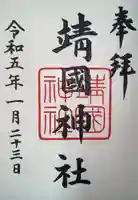 奉拝
靖國神社
靖国神社
令和五年一月二十三日